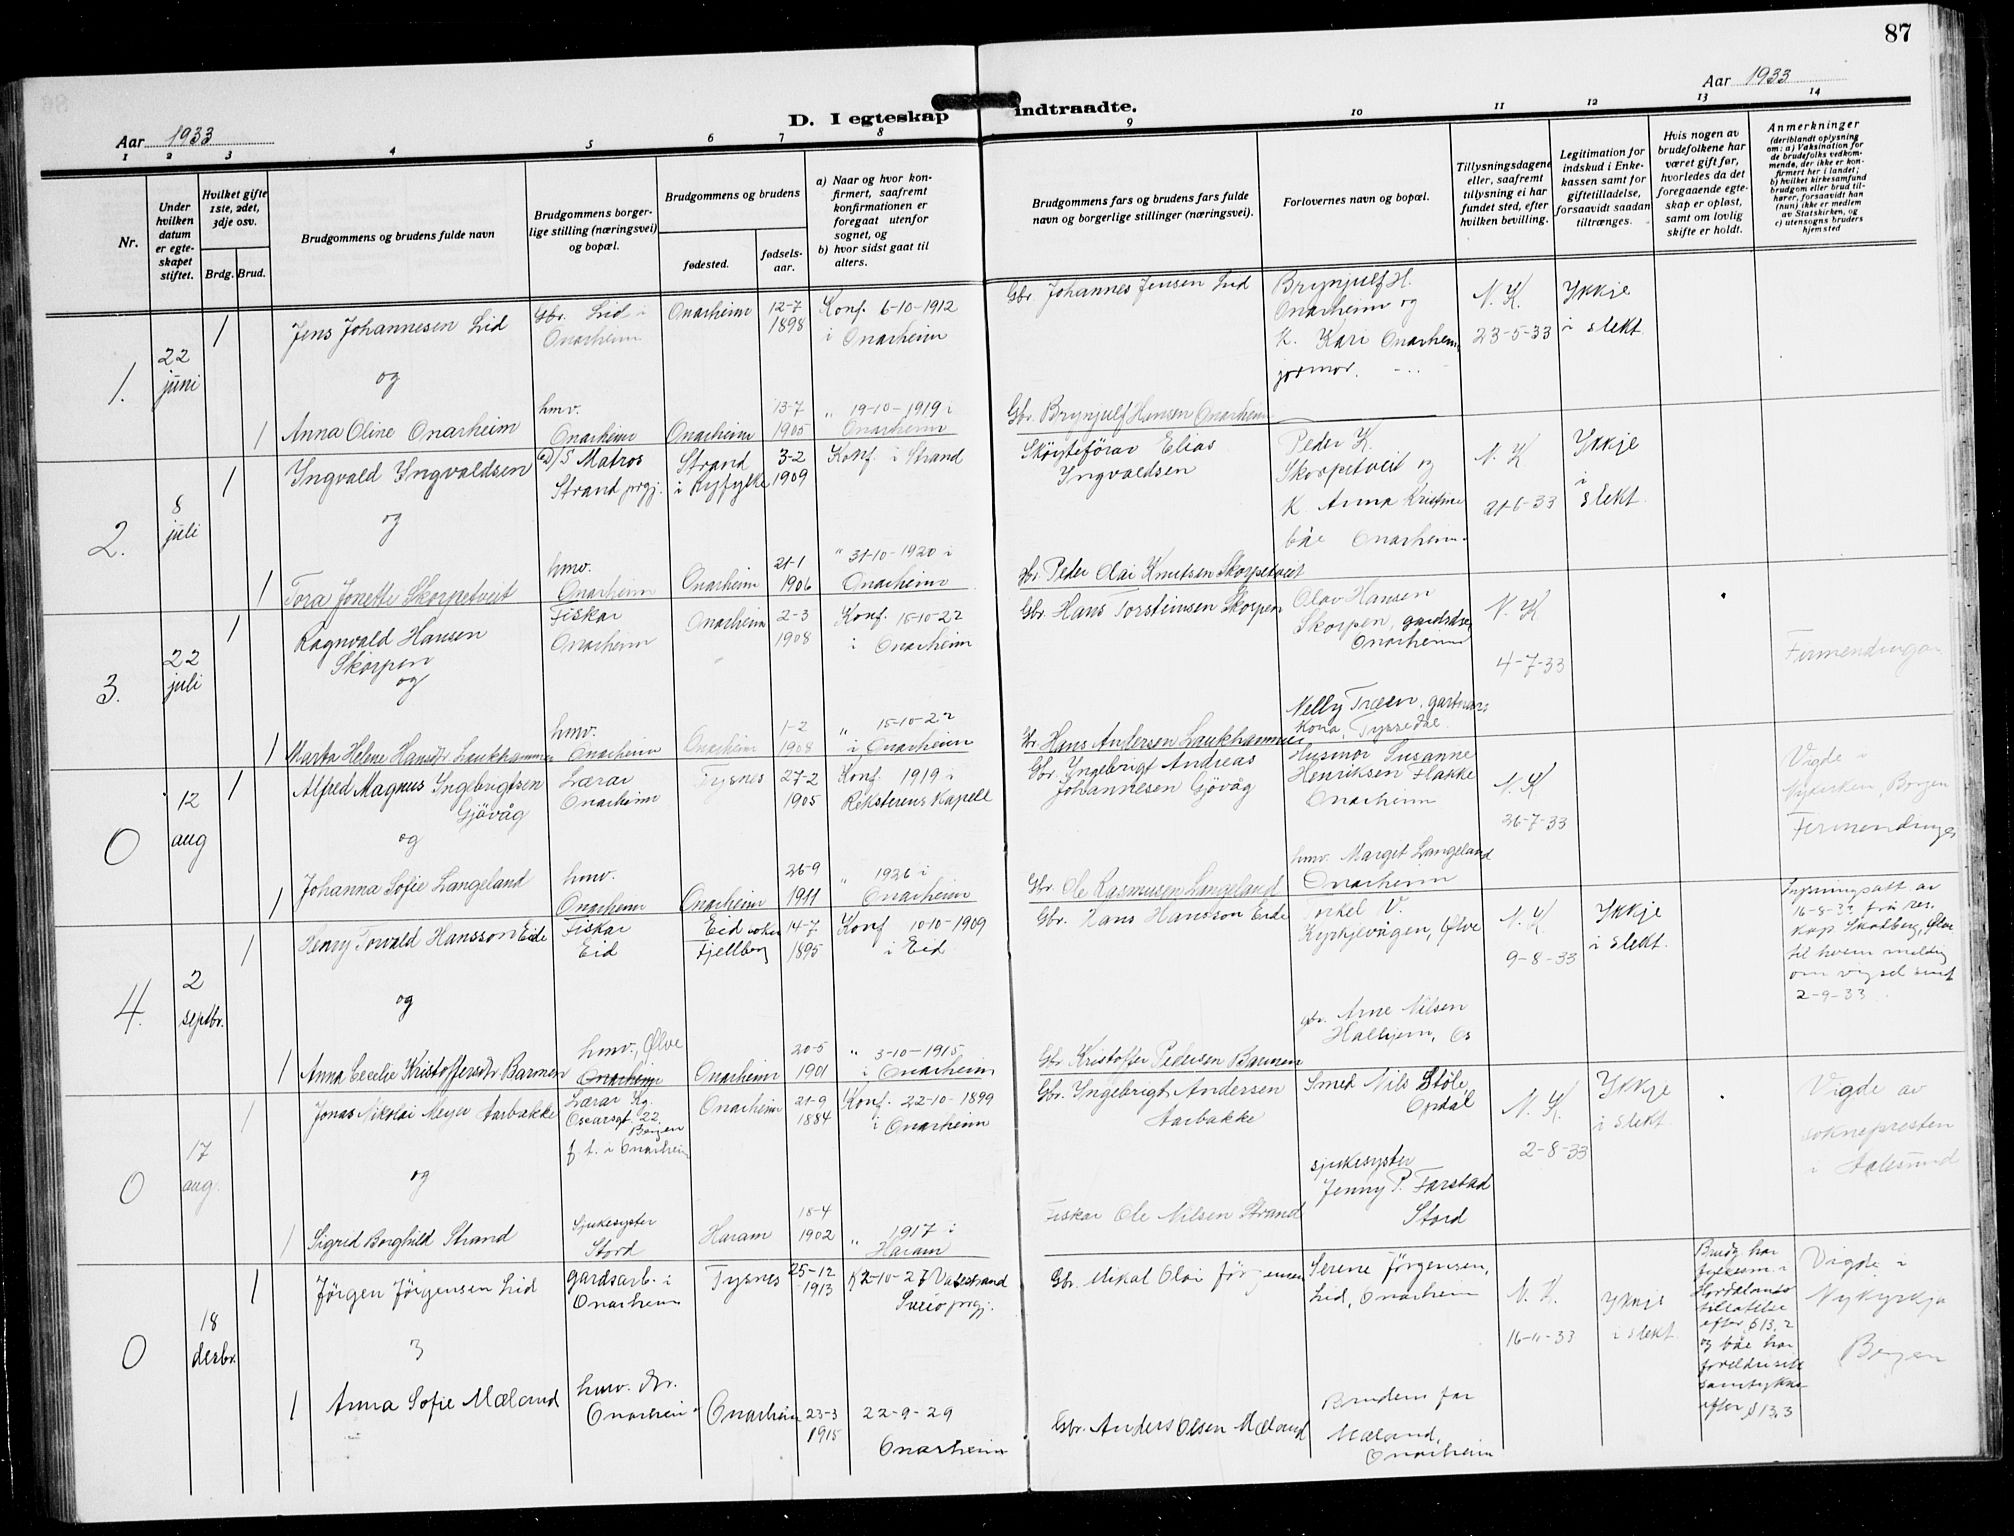 87
Aar 1933
D. I egteskap indtraadte.
Aar 1933
1 2 3 4 5 6 7 8 9 10 11 12 13 14
Nr.
Under hvilken datum er egteskapet stiftet.
Hvilket gifte 1ste, 2det, 3dje osv.
Brdg. Brud.
Brudgommens og brudens fulde navn
Brudgommens borgerlige stilling (næringsvei) og bopæl.
Brudgommens og brudens
fødested.
fødselsaar.
a) Naar og hvor konfirmert, saafremt konfirmationen er foregaat utenfor sognet, og
b) hvor sidst gaat til alters.
Brudgommens fars og brudens fars fulde navn og borgerlige stillinger (næringsvei).
Forlovernes navn og bopæl.
Tillysningsdagene eller, saafremt tillysning ei har fundet sted, efter hvilken bevilling.
Legitimation for indskud i Enkekassen samt for giftetilladelse, forsaavidt saadan tiltrænges.
Hvis nogen av brudefolkene har været gift før, hvorledes da det foregaaende egteskap er opløst, samt om lovlig skifte er holdt.
Anmerkninger
(deriblandt oplysning om: a) Vaksination for de brudefolks vedkommende, der ikke er konfirmert her i landet; b) hvilket kirkesamfund brudgom eller brud tilhører, forsaavidt han (hun) ikke er medlem av Statskirken, og c) utensogns bruders hjemsted
1. 22 juni
1 Jens Johannesen Lid
Gbr. Lid i Onarheim
Onarheim 12-7 1898
Konf. 6-10-1912 i Onarheim
Gbr. Johannes Jensen Lid
Brynjulf H. Onarheim og
K. Kari Onarheim, jormor.
N. K. 23-5-33
Ykkje i slekt
og
1 Anna Oline Onarheim
hmv. Onarheim
Onarheim 13-7 1905
" 19-10-1919 i Onarheim
Gbr. Brynjulf Hansen Onarheim
2. 8 juli
1 Yngvald Yngvaldsen
D/S Matros Strand prgj.
Strand i Ryfylke 3-2 1909
Konf. i Strand
Skøyteförar Elias Yngvaldsen
Peder K. Skorpetveit og
K. Anna Kristine
båe Onarheim.
N. K 21-6-33
Ykkje i slekt.
og
1 Tora Jonette Skorpetveit
hmv. Onarheim
Onarheim 21-1 1906
" 31-10-1920 i Onarheim
Gbr. Peder Olai Knutsen Skorpetveit
3. 22 juli
1 Ragnvald Hansen Skorpen
Fiskar Onarheim
Onarheim 2-3 1908
Konf. 15-10-22 i Onarheim
Gbr. Hans Torsteinsen Skorpen
Olav Hansen Skorpen, Onarheim
N. K 4-7-33
og
1 Marta Helene Hansdtr Laukhammer
hmv. Onarheim
Onarheim 1-2 1908
" 15-10-22 i Onarheim
Hans Andersen Laukhammer
Nelly Træen, gartnars kona, Tyssedal.
0 12 aug
1 Alfred Magnus Yngebrigtsen Gjövåg
Lærar Onarheim
Tysnes 27-2 1905
Konf. 1919 i Reksterens Kapell
Gbr. Yngebrigt Andreas Johannesen Gjövåg
Husmor Susanne Henriksen Flakke Onarheim
N. K 26-7-33
Vigde i Nykirken, Bergen
og
1 Johanna Sofie Langeland
hmv. Onarheim
Onarheim 26-9 1911
" 1926 i Onarheim
Gbr. Ole Rasmussen Langeland
hmv. Margit Langeland Onarheim
4. 2 septbr.
1 Henry Torvald Hansson Eide
Fiskar Eid
Eid sokn Fjellberg 14-7 1895
Konf 10-10-1909 i Eid
Gbr. Hans Hansson Eide
Torkel V. Kyrkjevågen, Ølve
N. K. 9-8-33
Ykkje i slekt.
16-8-33 frå res. kap Skatberg, Ølve til hvem melding om vigsel sendt 2-9-33.
og
1 Anna Cecelie Kristoffersdtr Barmen
hmv., Ølve
Onarheim
Onarheim 20-5 1901
" 3-10-1915 i Onarheim
Gbr Kristoffer Pedersen Barmen
gbr. Arne Nilsen Halhjem, Os
0 17 aug.
1 Jonas Nikolai Meyer Aarbakke
Lærar Kg. Oscarsgt 22 Bergen f. t. i Onarheim
Onarheim 21-9 1884
Konf. 22-10-1899 i Onarheim
Gbr. Yngebrigt Andersen Aarbakke
Smed Nils Støle Opdal
N. K. 2-8-33
Ykkje i slekt.
Vigde av sokneprosten i Aalesund
og
1 Sigrid Borghild Strand
Sjukesyster Stord
Haram 18-4 1902
" 1917 i Haram
Fiskar Ole Nilsen Strand
sjukesyster Jenny P. Farstad Stord
0 18 desbr.
1 Jörgen Jörgensen Lid
gardsarb. i Onarheim
Tysnes 25-12 1913
K 2-10-27 Valestrand Sveio prgj.
Gbr. Mikal Olai Jörgensen
Serene Jörgensen, Lid, Onarheim
N. K. 16-11-33
Ykkje i slekt.
Brudg har fylkesm. i Hordalands tillatelse efter § 13,2 og båe har foreldrusitt samtykke efter § 13,3
Vigde i Nykyrkja Bergen
1 Anna Sofie Mæland
hmv. Onarheim
Onarheim 23-3 1915
22-9-29 Onarheim
Gbr. Anders Olsen Mæland
Brudens far Mæland, Onarheim